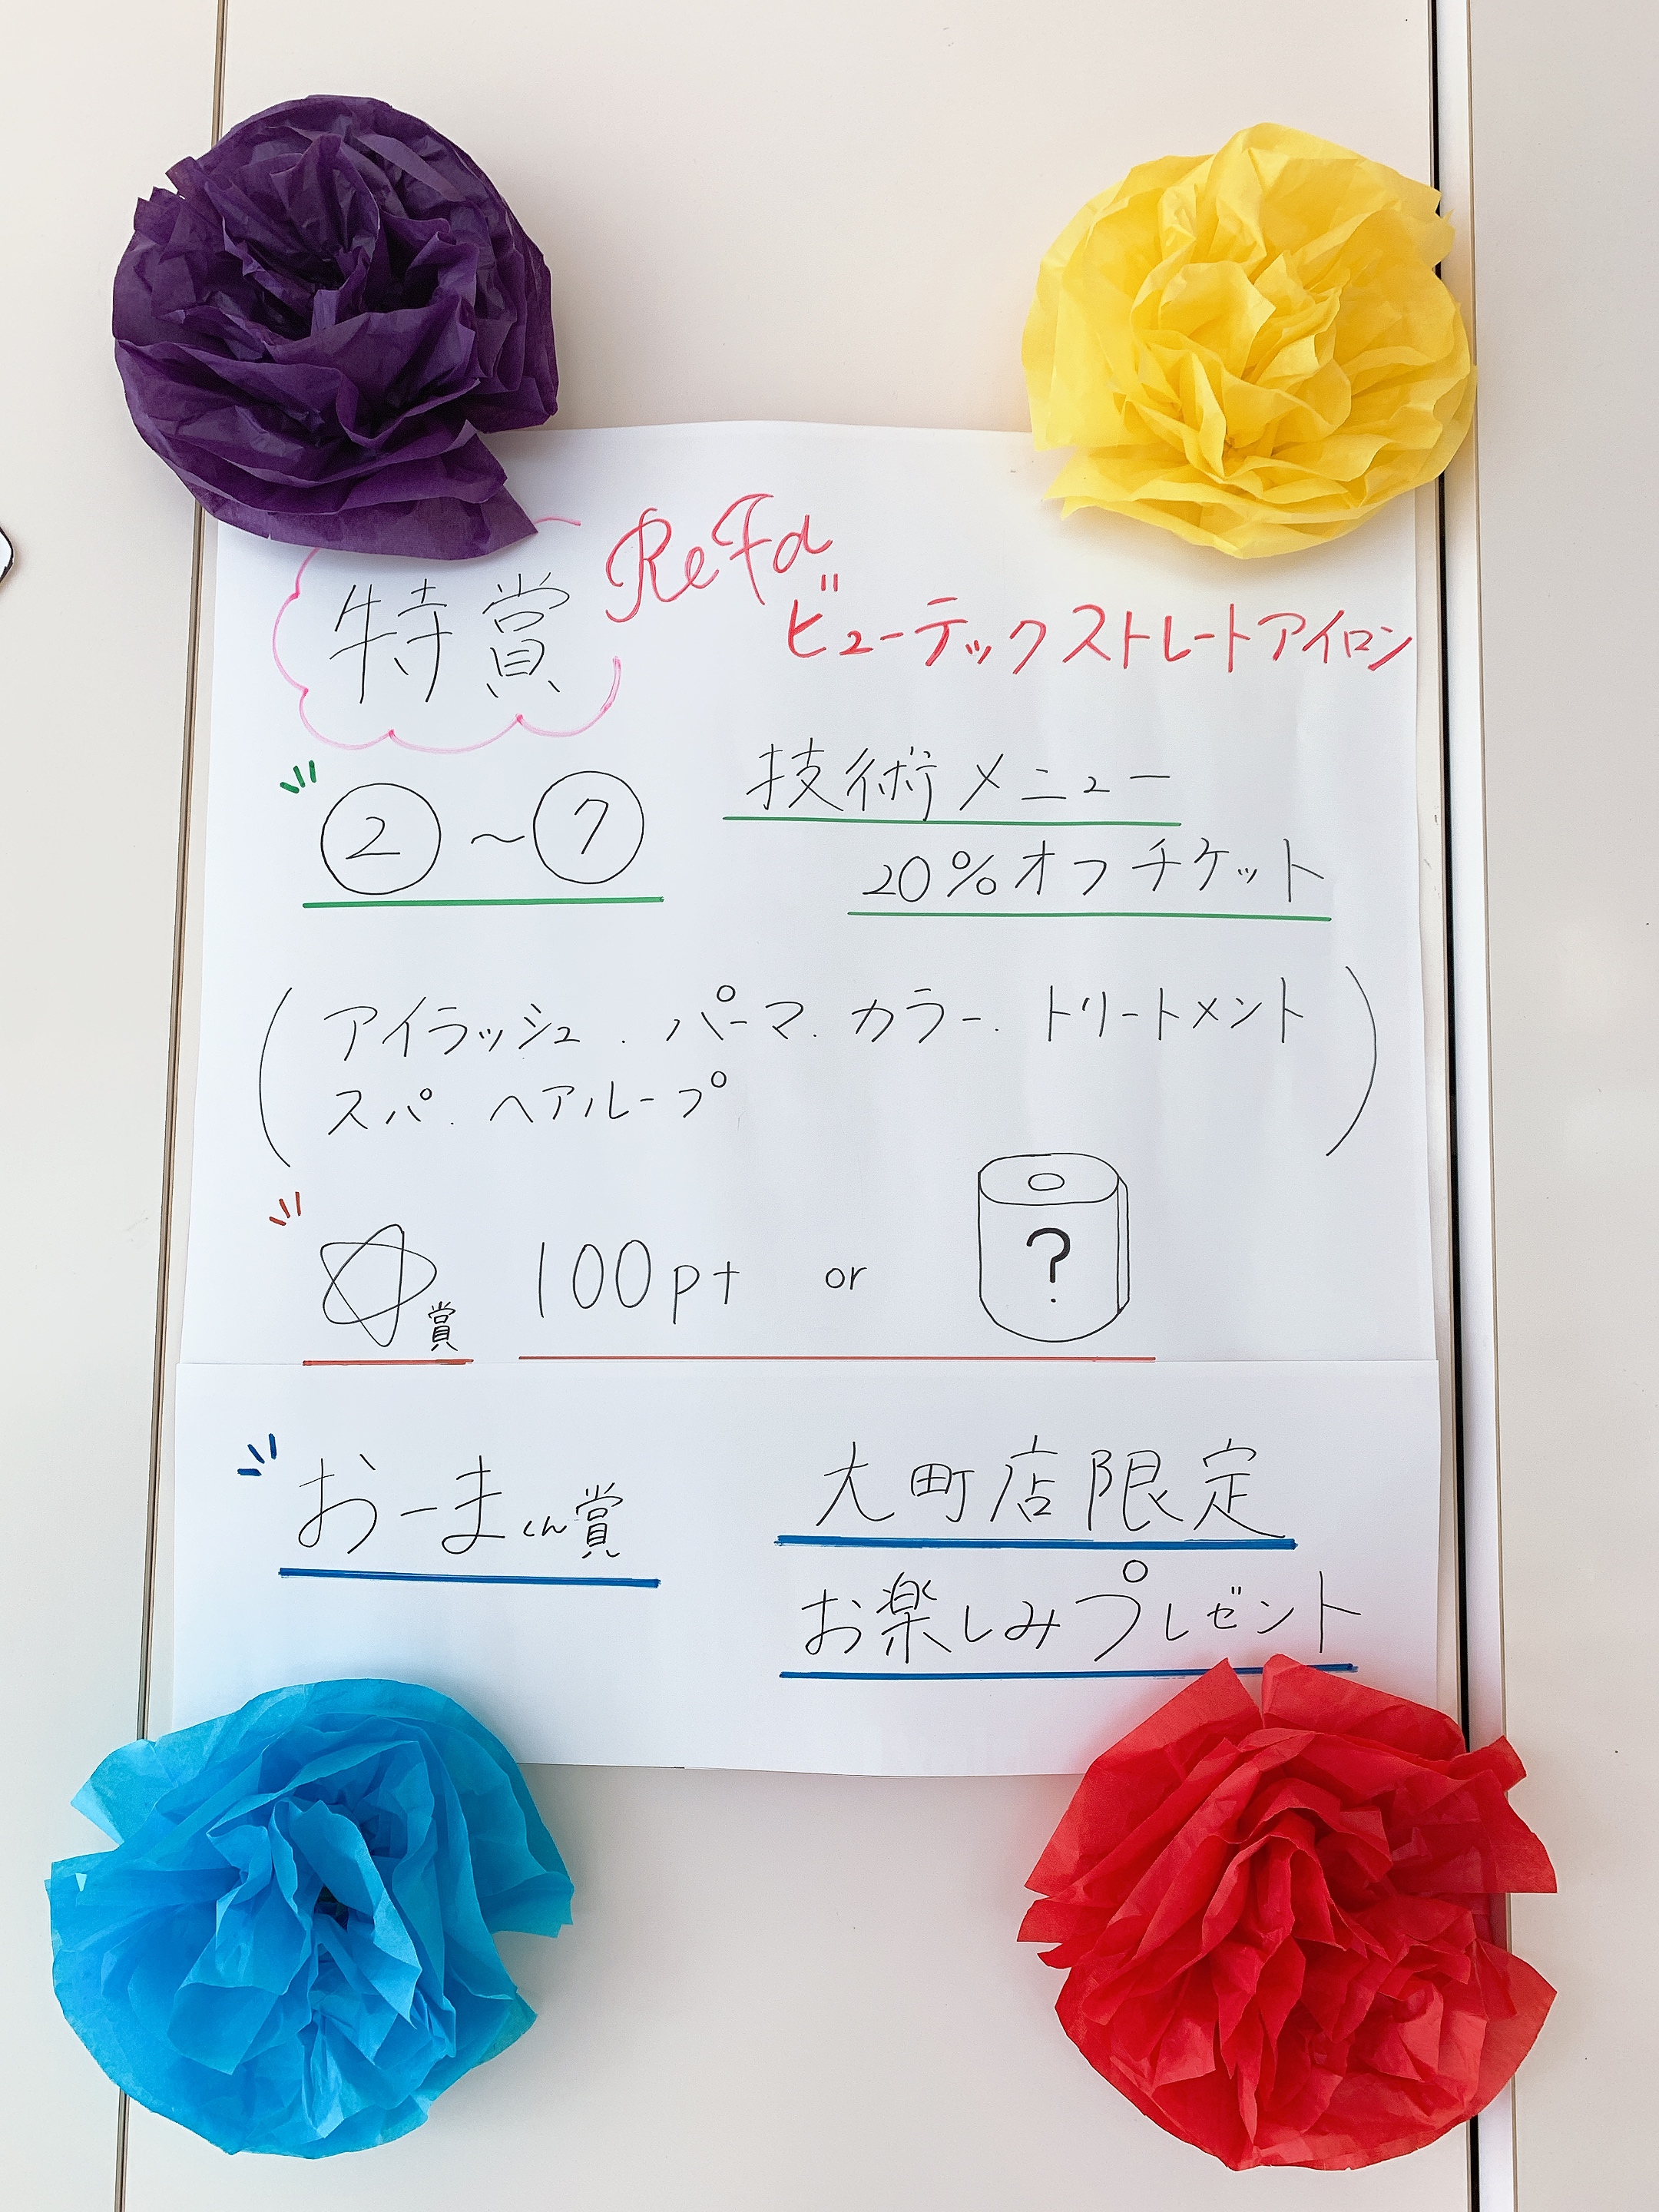 特賞 ReFa
ビューテック ストレートアイロン
②～⑦ 技術メニュー
20%オフチケット
(アイラッシュ．パーマ．カラー．トリートメント
スパ．ヘアループ)
賞 100pt or ?
おーまくん賞 大町店限定
お楽しみプレゼント